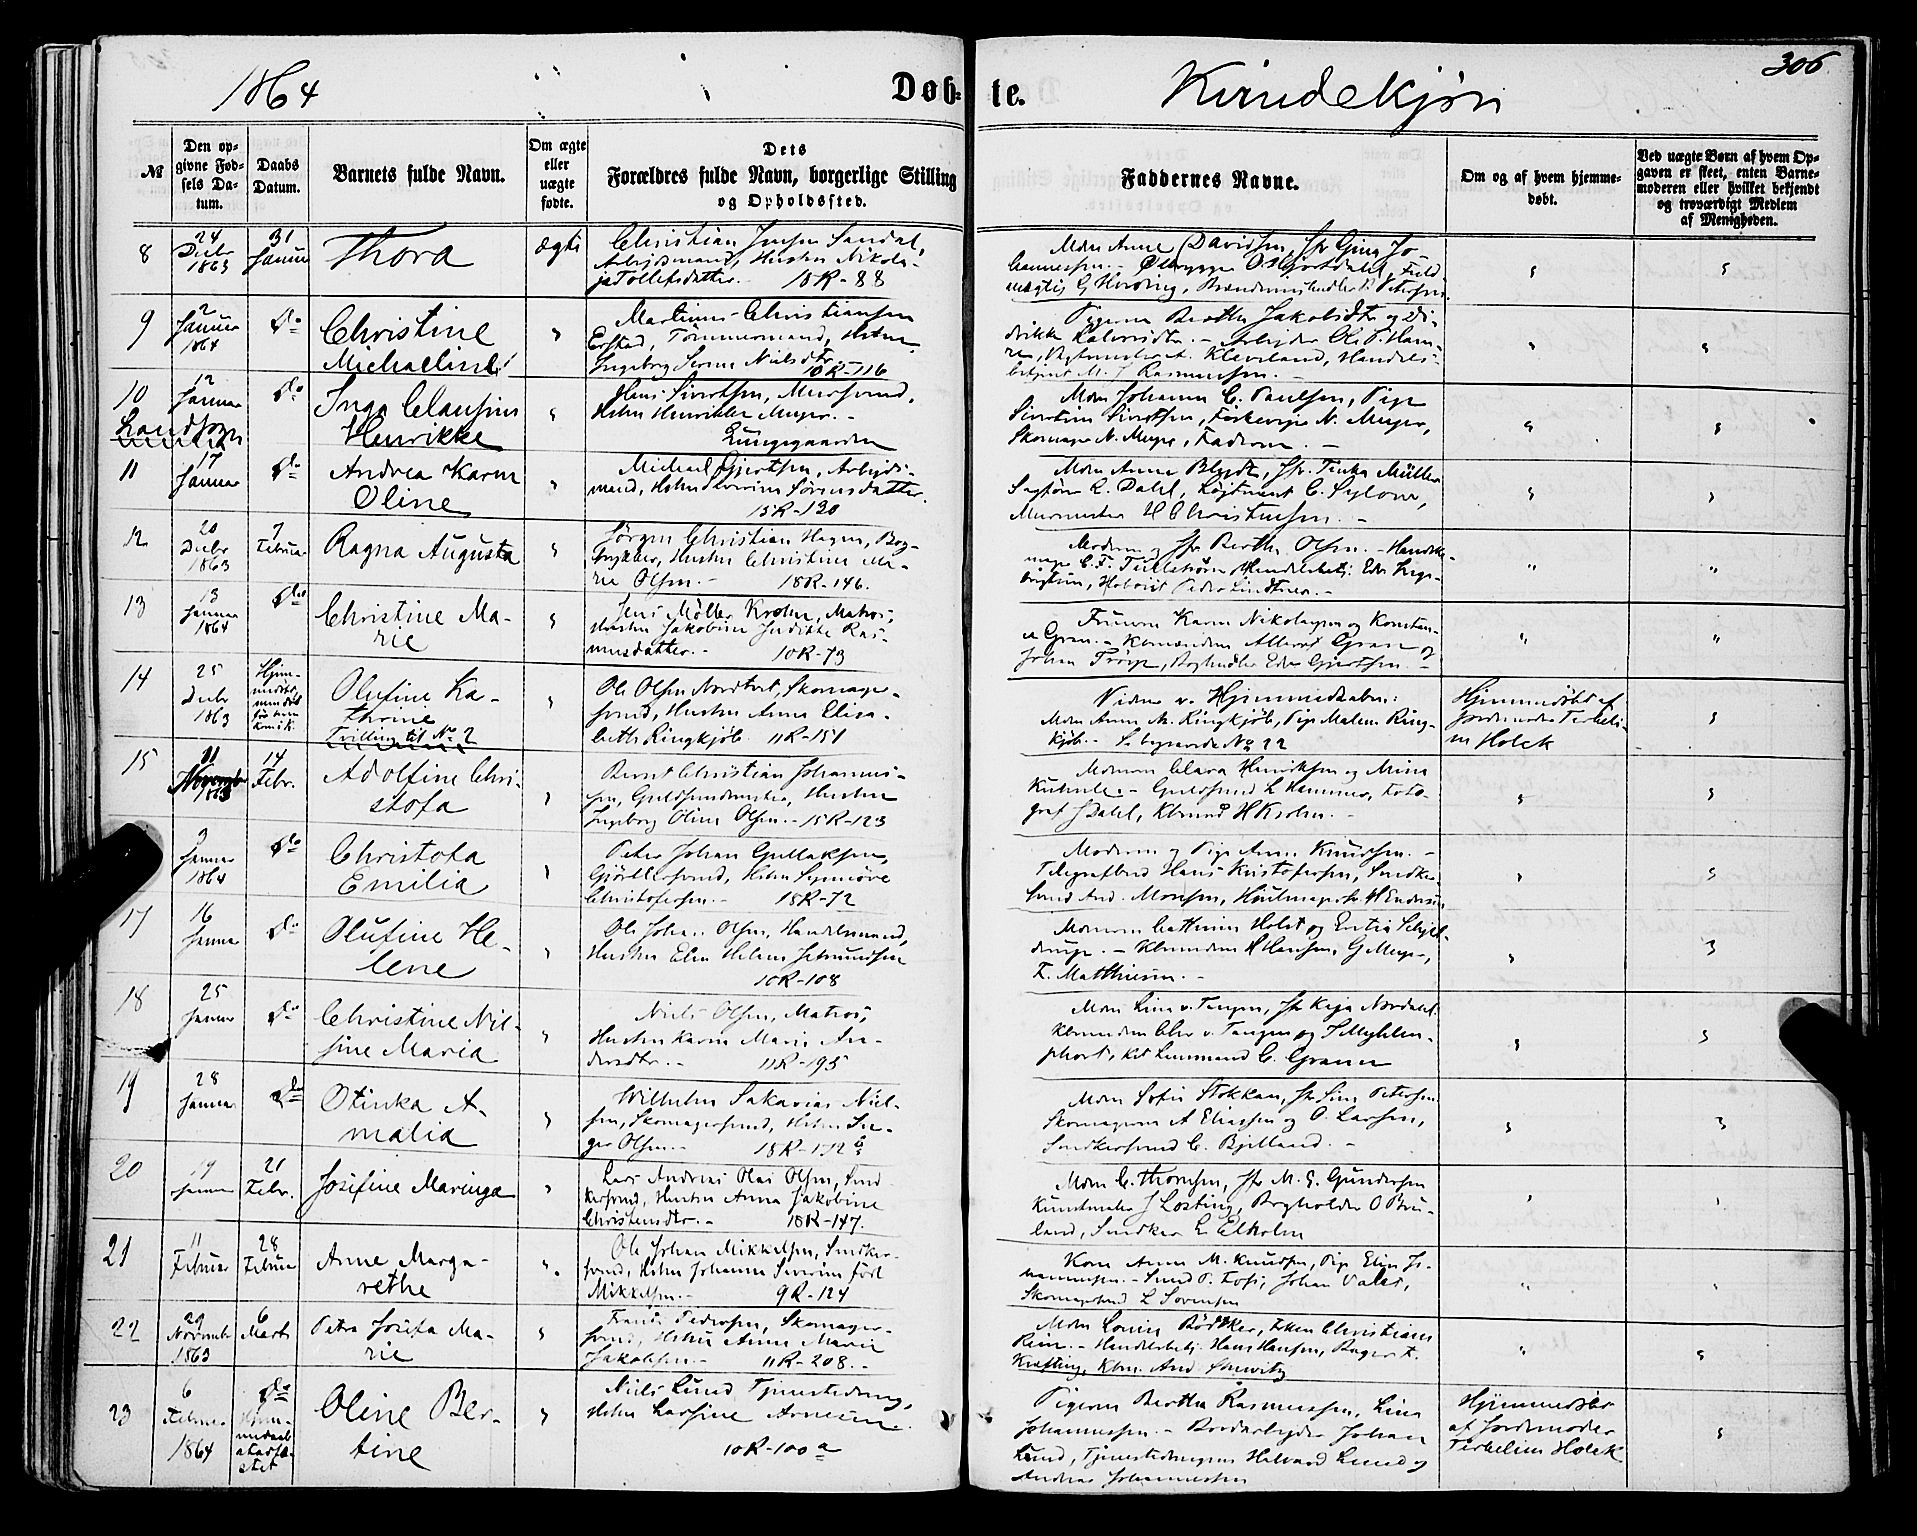 306
1864
Døb-
te.
Kvindekjøn
№
Den op-
givne Fød-
sels Da-
tum.
Daabs
Datum.
Barnets fulde Navn.
Om ægte
eller
uægte
fødte.
Dets
Forældres fulde Navn, borgerlige Stilling
og Opholdssted.
Faddernes Navne.
Om og af hvem hjemme-
døbt.
Ved uægte Børn af hvem Op-
gaven er skeet, enten Barne-
moderen eller hvilket bekjendt
og troværdigt Medlem
af Menigheden.
8
24
Decbr
1863
31
Januar
Thora
ægte
Christian Jensen Sandal,
Arbeidsmand, Hustru Nikola-
ja Tollefsdatter.- 18R-88
Mdm Anne Davidsen, Jfr Gina Jo-
hannessen.- Ølbrygger O. Hjortdahl, Fuld-
mægtig G Herding, Brændeviinshandler P. Petersen
9
2
Januar
1864
Do
Christine
Michaeline
Martinus Christiansen
Erstad, Tømmermand, Hustru
Ingeborg Serine Nielsdtr.
10R-116
Pigerne Berthe Jakobsdtr og Di-
drikke Halvorsdtr.- Arbeider Ole P. Ham-
re, Kleveland, Handels-
betjent M. J Rasmussen.-
10
12
Januar
Do
Landsogn
Inga Clausine
Henrikke
Hans Sivertsen, Muursvend,
Hustru Henrikke Meyer.-
Lungegaarden
Mdm Johanne C. Paulsen, Pige
Sivertine Sivertsen, N. Meyer,
Skomager N. Meyer, Faderen.-
11
17
Januar
Do
Andrea Karen
Oline
Michael Gjertsen, Arbeids-
mand, Hustru Severine Sørensdatter.
15R-120
Mdm Anne Blydt, Jfr. Tinka Müller
L. Dahl, Løjtnant C. Sylow,
Murmester H Christensen.-
12
20
Decbr
1863
7
Februar
Ragna Augusta
Jørgen Christian Hagen, Bog-
trykker, Hustru Christine Ma-
rie Olsen.- 18R-146.
Moderen og Jfr Berthe Olsen.- Handske-
mager C. F. Handelsbetj. Edv Inge-
brigtsen, Peder Lindtner.-
13
13
Januar
1864
Do
Christine Ma-
rie
Jens Møller Krohn, Matros,
Hustru Jakobine Judithe Ras-
musdatter.- 10R-73
Fruerne Karen Nikolaysen og Konstan-
ce Gran.- Kbmændene Albert Gran og
Johan Troye, Boghandler Edv Gjertsen.-
14
25
Decbr
1863
Hjem-
medøbt,
Olufine Ka-
thrine
Tvilling til No 2
Ole Olsen Nordtvet, Skomager-
svend, Hustru Anna Elisa-
beth Ringkjøb. 11R-151
Vidner v. Hjemmedaaben:
Mdm Anne M. Ringkjøb, Pige Malene Ring-
kjøb.- S. begravede No 22
Hjemmedøbt af
Jordemoder Terbeli-
ne Holck
15
11
November
1863
14
Febr.
Adolfine Chri-
stofa
Bernt Christian Johannes-
sen, Guldsmedmester, Hustru
Ingeborg Oline Olsen.- 15R-123
Mdmerne Clara Henriksen og Mina
Kuhnle.- Guldsmed L Hammer, Foto-
graf J Dahl, Kbmand H Krohn.-
9
Januar
1864
Do
Christofa
Emilia
Peter Johan Gullaksen,
Gjørtlersvend, Hustru Synnøve
Christofersen.- 18R-72
Moderen og Pige Anne Knudsen.-
Telegrafbud Hans Kristofersen, Snedker-
svend And. Monsen, H Endresen
17
16
Januar
Do
Olufine He-
lene
Ole Johan Olsen, Handelsmand,
Hustru Elen Helene Jetmundsen
10R-108
Mdmerne Cathrine Holst og Entia Schjel-
derup.- Kbmændene H Hansen, G Meyer,
F. Matthiesen.-
18
25
Januar
Do
Christine Nil-
sine Maria
Niels Olsen, Matros,
Hustru Karen Marie An-
dersdtr.- 11R-195
Mdm Line v. Tangen, Jfr Kaja Nordahl.
Kbmændene Chr v. Tangen og J Myhlen-
phort, Kst Leinmand C. Graner
19
28
Januar
Do
Otinka A-
malia
Wilhelm Sakarias Niel-
sen, Skomagersvend, Hustru In-
ger Olsen.- 18R-172
Mdm Sofie Stokkan, Jfr Sine Petersen
Skomagerne A Eliassen og O. Larsen,
Snedkersvend C. Bjelland.-
20
19
Januar
21
Febr.
Josefine Maringa
Lars Andreas Olai Olsen, Sned-
kersvend, Hustru Anna Jakobine
Christensdtr.- 18R-147.
Mdm C. Thomsen, Jfr M. E. Gundersen
Kunstmaler J Losting, Bogholder O Bru-
land, Snedker L Ekholm
21
11
Februar
28
Februar
Anne Marga-
rethe
Ole Johan Mikkelsen, Snedker-
svend, Hustru Johanne Severine født
Mikkelsen.- 9R-124
Kone Anne M. Knudsen, Pige Eline Jo-
hannessen.- Smed P. Foss, Johan Valet,
Skomagersvend L Sørensen
22
29
Novembr
1863
6
Marts
Petra Josefa Ma-
rie
Frants Pedersen, Skomager-
svend, Hustru Anne Marie
Jakobsen.- 11R-208.-
Mdm Louise Bødtker, Frøken Christiane
Rein.- Handelsbetj. Hans Hansen, Bager F.
Krefting, Kbm. And
23
6
Februar
1864
Do
Hjem-
medaab
stadfæ-
stet
Oline Ber-
tine
Niels Lund Tjenestedreng,
Hustru Larsine Arnesen.
10R-100a
Pigerne Berthe Rasmussen, Line
Johannessen.- Bordarbeider Johan
Lund, Tjenestedrengene Halvard Lund og
Andreas Johannessen
Hjemmedøbt
af Jordemoder
Terbeline Holck